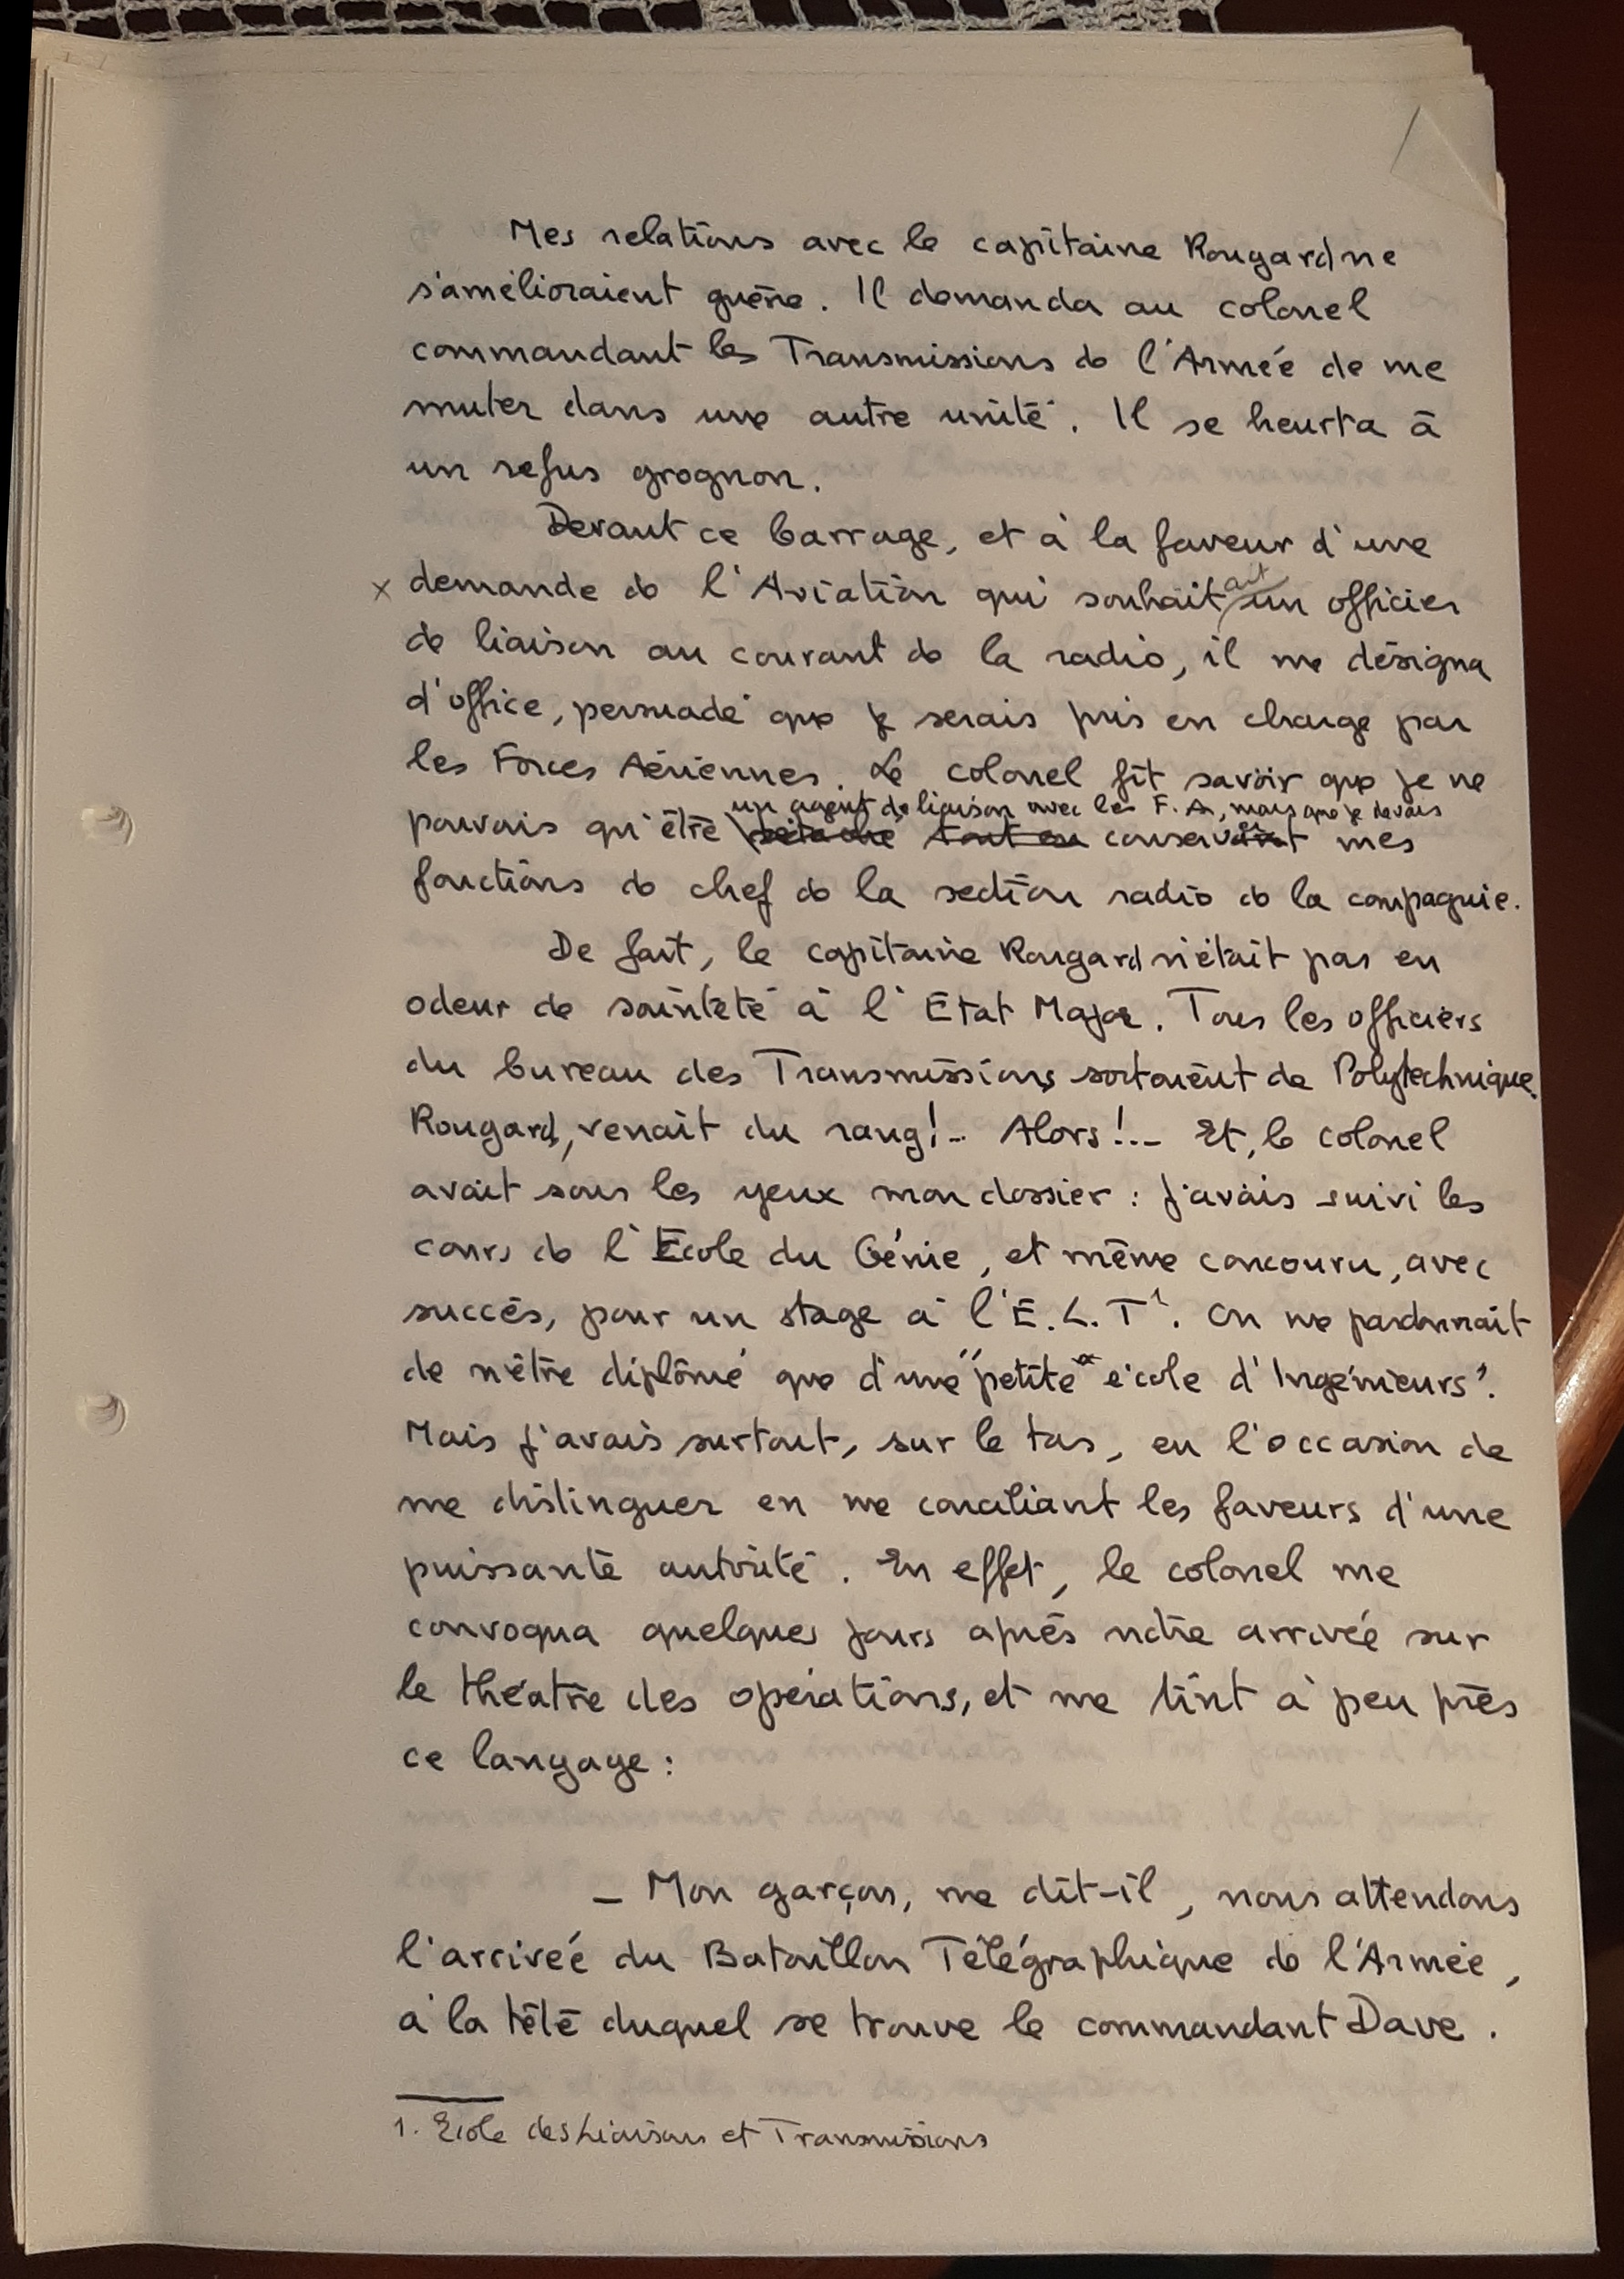 Mes relations avec le capitaine Rougard ne
s'amélioraient guère. Il demanda au colonel
commandant les Transmissions de l'Armée de me
muter dans une autre unité. Il se heurta à
un refus grognon.
Devant ce barrage, et à la faveur d'une
x demande de l'Aviation qui souhaitait un officier
de liaison au courant de la radio, il me désigna
d'office, persuadé que je serais pris en charge par
les Forces Aériennes. Le colonel fit savoir que je ne
un agent de liaison avec les F.A., mais que je devais
pouvais qu'être détaché tout en conserver mes
fonctions de chef de la section radio de la compagnie.
De fait, le capitaine Rougard n'était pas en
odeur de sainteté à l'Etat Major. Tous les officiers
du bureau des Transmissions sortaient de Polytechnique.
Rougard, venait du rang !.. Alors !.. Et, le colonel
avait sous les yeux mon dossier : j'avais suivi les
cours de l'Ecole du Génie, et même concouru, avec
succès, pour un stage à l'E.L.T¹. On me pardonnait
de n'être diplômé que d'une "petite" école d'Ingénieurs".
Mais j'avais surtout, sur le tas, eu l'occasion de
me distinguer en me conciliant les faveurs d'une
puissante autorité. En effet, le colonel me
convoqua quelques jours après notre arrivée sur
le théatre des opérations, et me tint à peu près
ce langage :
– Mon garçon, me dit-il, nous attendons
l'arrivée du Bataillon Télégraphique de l'Armée,
à la tête duquel se trouve le commandant Dave.
1. Ecole des Liaisons et Transmissions